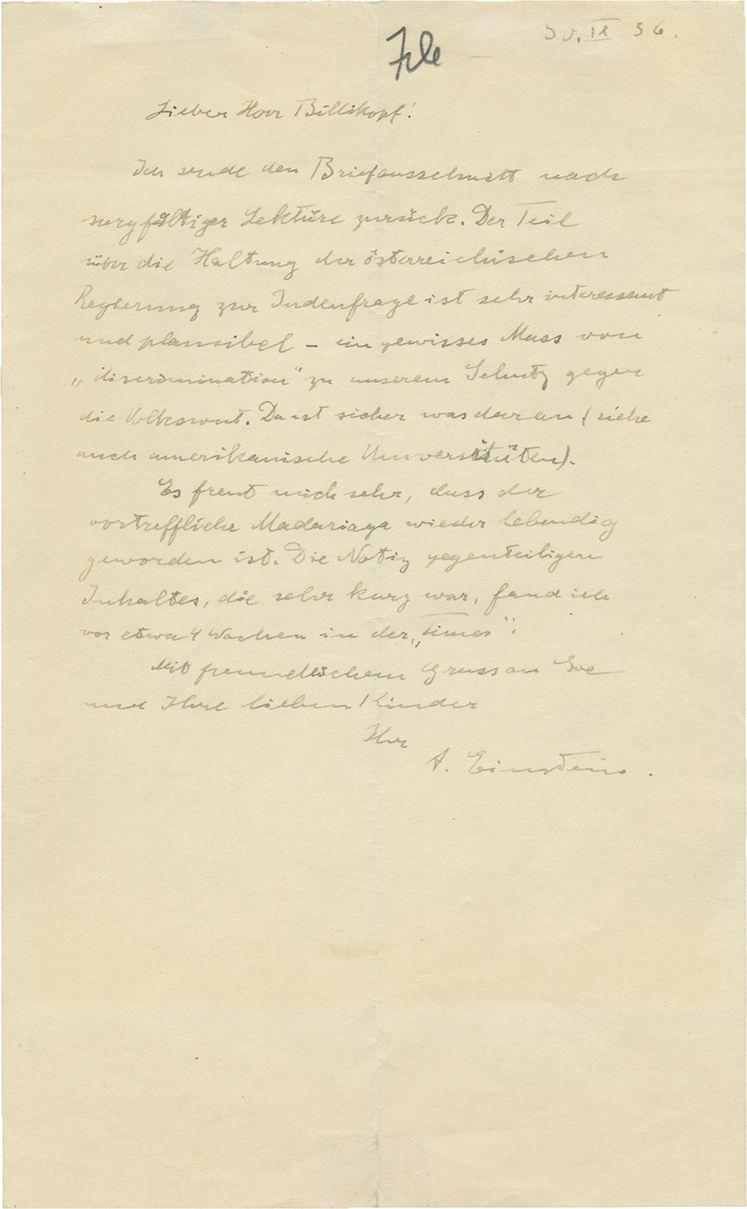 30. IX 36.
File
Lieber Herr Billikopf!
Ich sende den Briefausschnitt nach
sorgfältiger Lektüre zurück. Der Teil
über die Haltung der österreichischen
Regierung zur Judenfrage ist sehr interessant
und plausibel – ein gewisses Mass von
„discrimination" zu unserem Schutz gegen
die Volkswut. Da ist sicher was daran (siehe
auch amerikanische Universitäten).
Es freut mich sehr, dass der
vortreffliche Madariaga wieder lebendig
geworden ist. Die Notiz gegenteiligen
Inhaltes, die sehr kurz war, fand ich
vor etwa 4 Wochen in der „Times".
Mit freundlichem Gruss an Sie
und Ihre lieben Kinder
Ihr
A. Einstein.